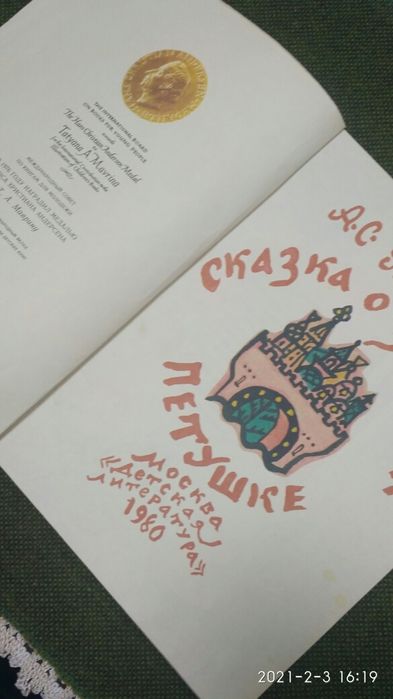 THE INTERNATIONAL BOARD
ON BOOKS FOR YOUNG PEOPLE
awards
The Hans Christian Andersen Medal
to
Tatyana A. Mavrina
МЕЖДУНАРОДНЫЙ СОВЕТ
ПО КНИГАМ ДЛЯ ЮНОШЕСТВА
В 1976 ГОДУ НАГРАДИЛ МЕДАЛЬЮ
ХРИСТИАНА АНДЕРСЕНА
А. Маврину
А.С.
СКАЗКА О
ПЕТУШКЕ
МОСКВА
«ДЕТСКАЯ
ЛИТЕРАТУРА»
1980
2021-2-3 16:19